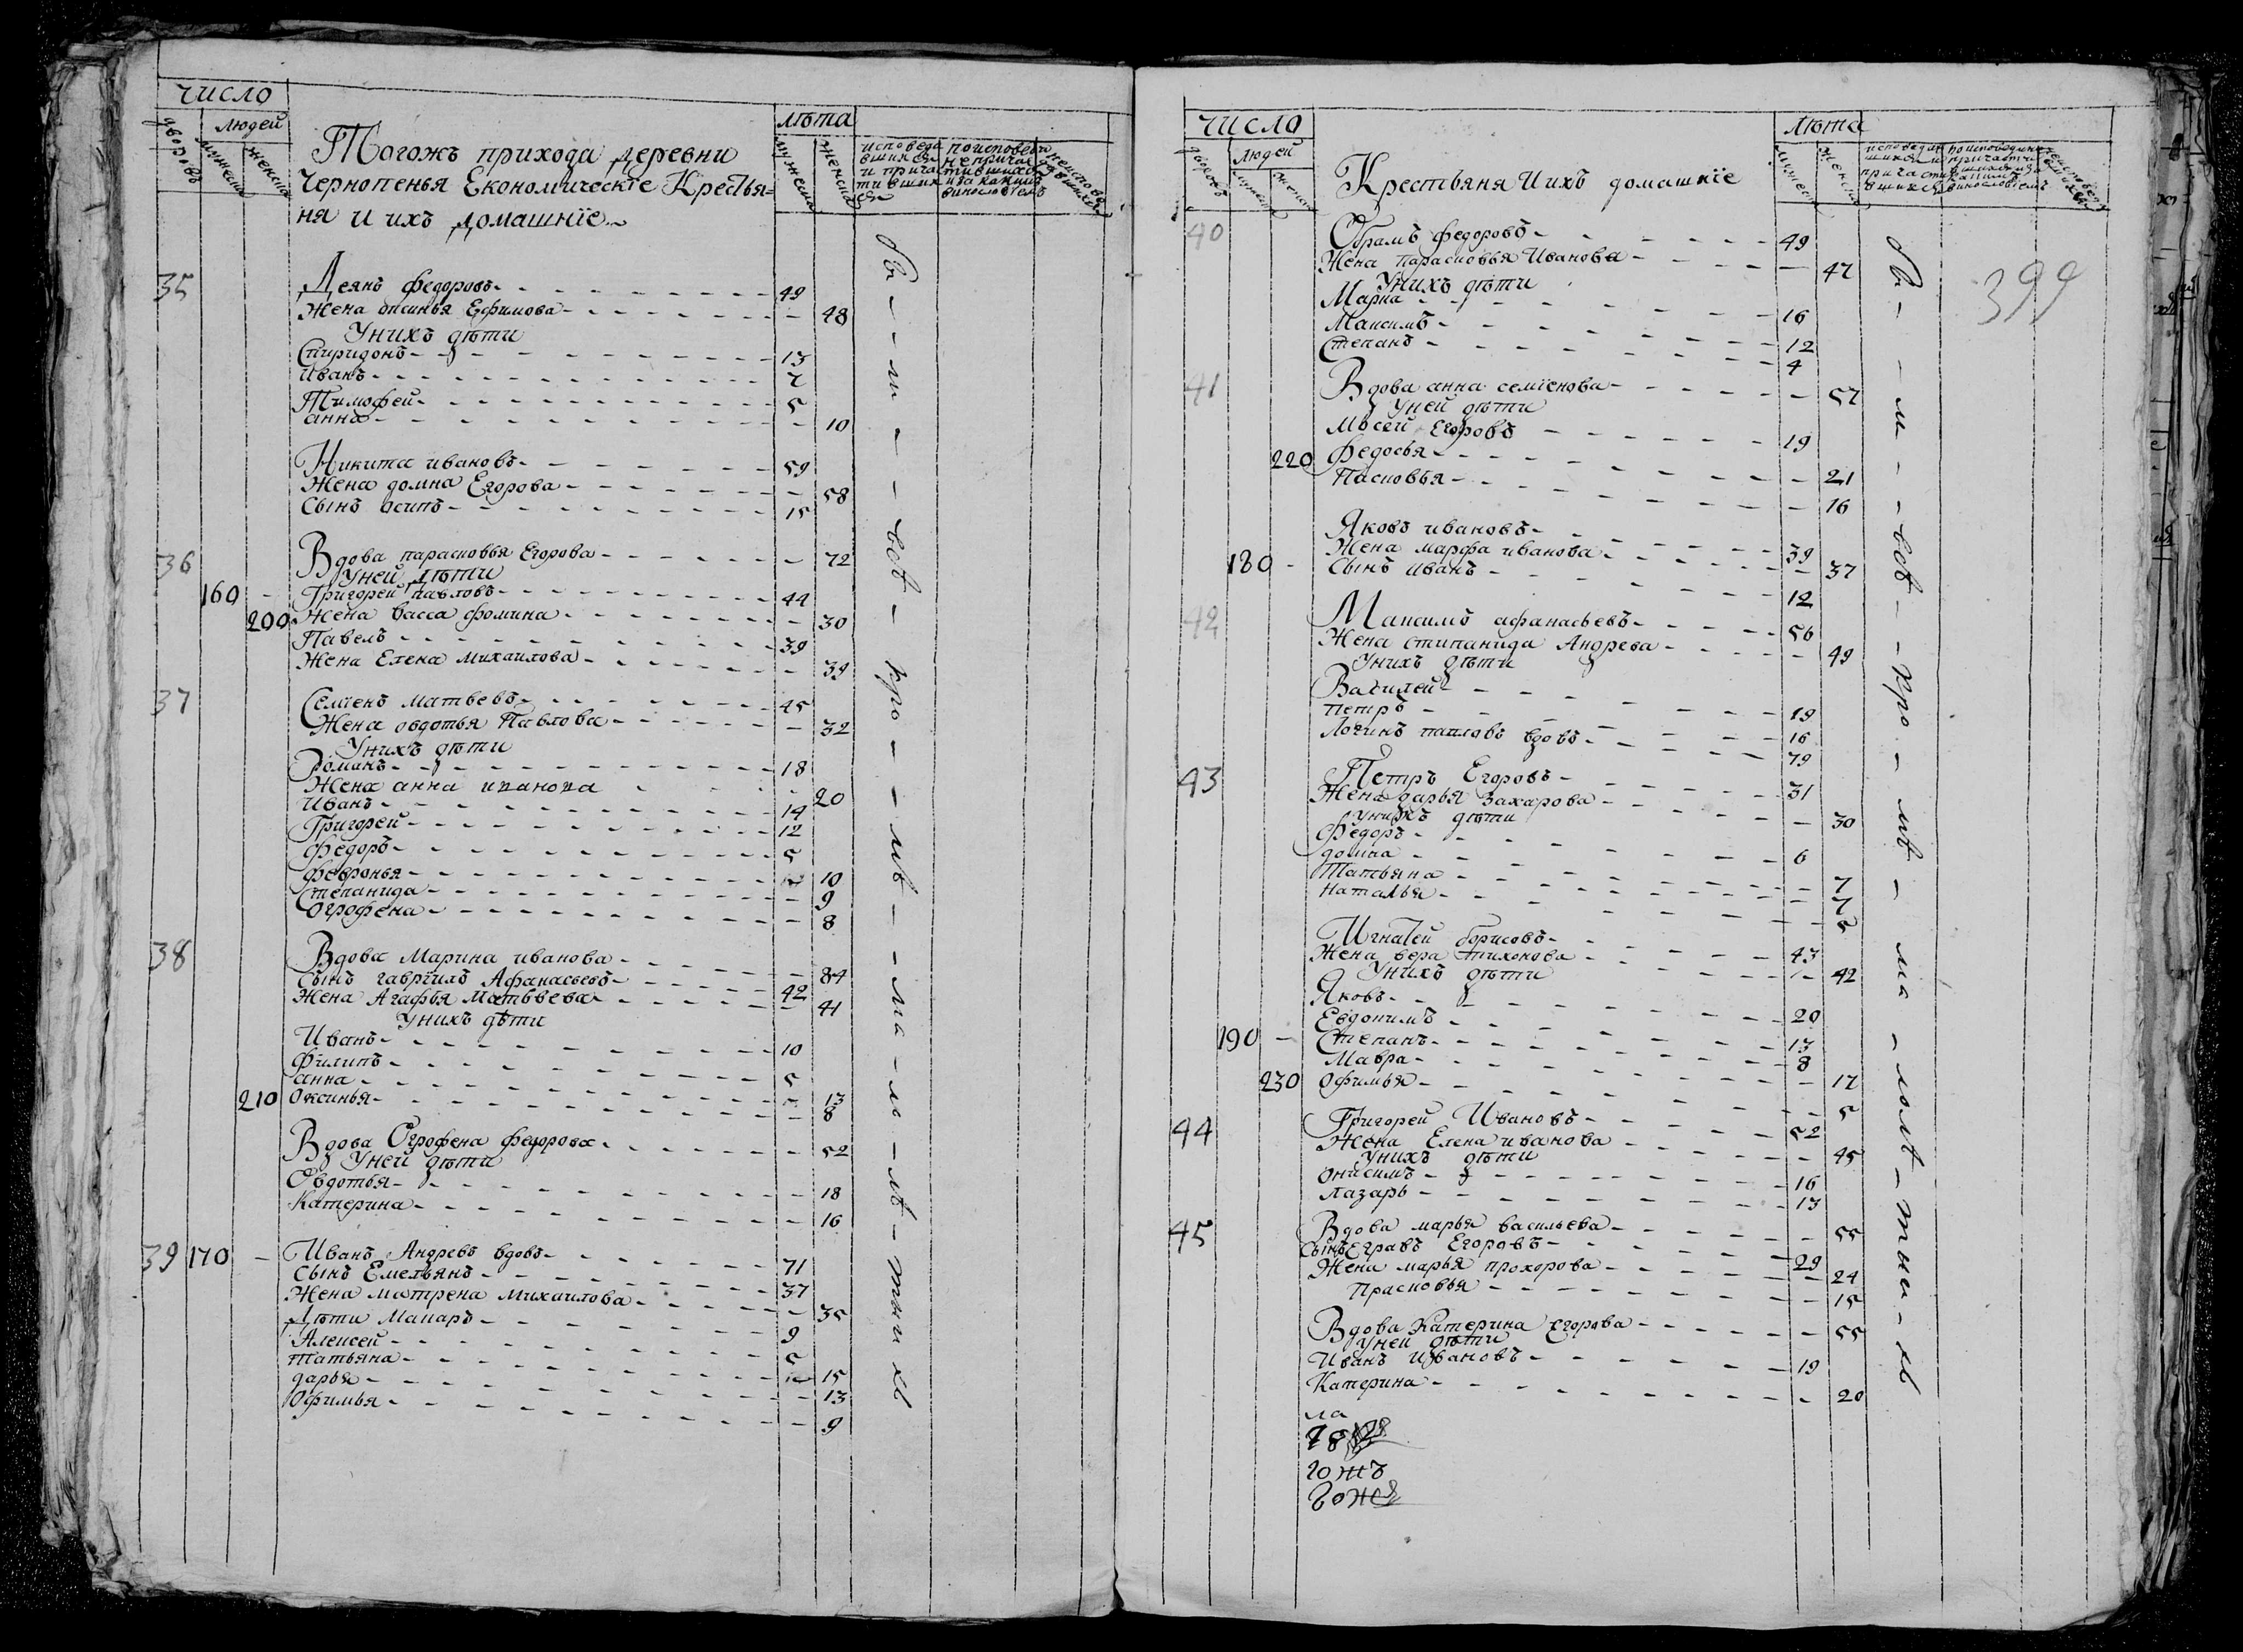 число
людей
лѣта
дворовъ
мужеска
женска
мужеска
женска
Тогожъ прихода деревни
Чернопенья Економическїе Крестья=
ня И ихъ домашнїе
исповеда
вшихся
и прича
тивших
ся
35
Деянъ федоровъ 49
Жена оксинья Ефимова 48
Унихъ дѣти
Спиридонъ 13
Иванъ 7
Тимофей 5
анна 10
Никита ивановъ 59
Жена домна Егорова 58
Сынъ осипъ 15
36
Вдова парасковья Егорова 72
Уней дѣти
160 Григорей павловъ 44
200 Жена васса фомина 30
Павелъ 39
Жена Елена михаилова 39
37
Семїенъ матьвевъ 45
Жена овдотья Павлова 32
Унихъ дѣти
Романъ 18
Жена анна иванова 20
Иванъ 14
Григорей 12
Федоръ 5
февронья 10
Степанида 9
Огрофена 8
38
Вдова Марина иванова 84
Сынъ гаврїилъ Афанасьевъ 42
Жена Агафья Матвѣева 41
Унихъ дѣти
Иванъ 10
филипъ 5
анна 13
210 Оксинья 8
Вдова Огрофена федорова 52
Уней дѣти
Овдотья 18
Катерина 16
39 170 Иванъ Андревъ вдовъ 71
Сынъ Емельянъ 37
Жена матрена михаилова 35
Дѣти Макаръ 9
Алексей 5
татьяна 15
дарья 13
Офимья 9
бы - ли - всѣ - кро - мѣ - ма - лѣ - тни хъ
число
людей
лѣта
Крестьяня Иихъ домашнїе
399
40
Обрамъ федоровъ 49
Жена парасковья Иванова 47
Унихъ дѣти
Марка 16
Максимъ 12
Степанъ 4
41
Вдова анна семїенова 57
Уней дѣти
Мосей Егоровъ 19
220 Федосья 21
Пасковья 16
Яковъ ивановъ 39
Жена марфа иванова 37
180 Сынъ иванъ 12
42
Максимъ афанасьевъ 56
Жена стипанида Андрева 49
Унихъ дѣти
Василей 19
петръ 16
Логинъ павловъ вдовъ 79
43
Петръ Егоровъ 31
Жена дарья Захарова 30
Унихъ дѣти
Федоръ 6
домна 7
Татьяна 7
наталья 5
Игнатей борисовъ 43
Жена вера тихонова 42
Унихъ дѣти
Яковъ 20
Евдокимъ 13
190 Степанъ 8
Мавра 17
230 Офимья 5
44
Григорей Ивановъ 52
Жена Елена иванова 45
Унихъ дѣти
Онисимъ 16
лазарь 13
45
Вдова марья васильева 55
Сынъ Егоровъ 29
Жена марья прохорова 24
Прасковья 15
Вдова Катерина Егорова 55
Уней дѣти
Иванъ Ивановъ 19
Катерина 20
ла
гожъ
бы - ли - всѣ - кро - мѣ - ма - лолѣ - тни - хъ